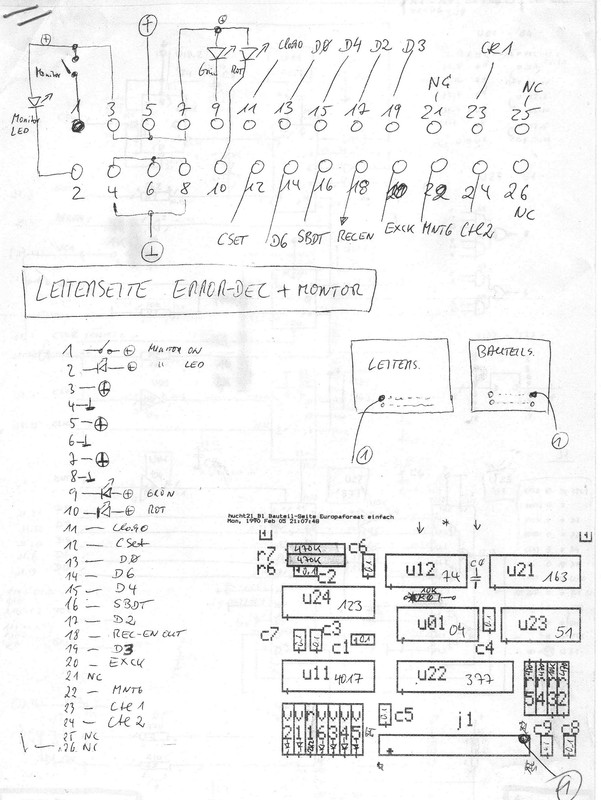 ⊕ + ⊕
Monitor Grün Rot CLO90 D0 D4 D2 D3 NC CR1 NC
Monitor LED
1 3 5 7 9 11 13 15 17 19 21 23 25
2 4 6 8 10 12 14 16 18 20 22 24 26
NC
CSET D6 SBDT RECEN EXCK MNT6 Ctl2
LEITERSEITE ERROR-DEC + MONITOR
1 ⊕ MONITOR ON
2 ⊕ " LED
3 ⊕
4
5 ⊕
6
7 ⊕
8
9 ⊕ GRÜN
10 ⊕ ROT
11 — CLO90
12 — CSet
13 — D0
14 — D6
15 — D4
16 — SBDT
17 — D2
18 — REC-EN OUT
19 — D3
20 — EXCK
21 NC
22 — MNT6
23 — Ctl 1
24 — Ctl 2
25 NC
26 NC
LEITERS.
BAUTEILS.
1 1
hucht21_B1 Bauteil-Seite Europaformat einfach
Mon, 1990 Feb 05 21:07:48
*
r7 470K c6
r6 470K
0.1 c2 0.1
u12 74 c0 u21 163
u24 123
u01 04 u23 51
c7 c3
c1 0.1 c4
u11 4017 u22 377
c5 j1 c9 c8
1